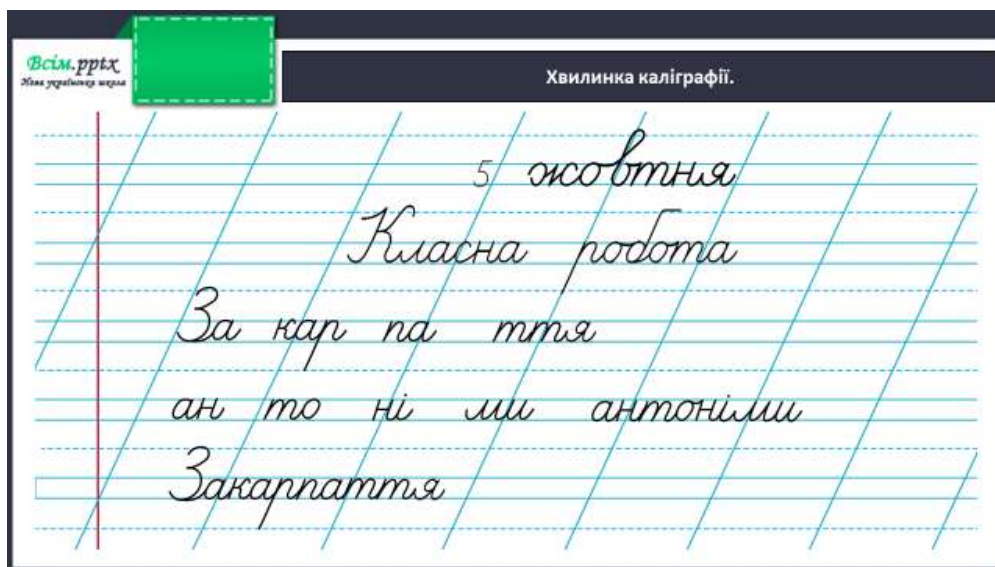 Всім.pptx
Нова українська школа
Хвилинка каліграфії.
5 жовтня
Класна робота
За кар па ття
ан то ні ми антоніми
Закарпаття